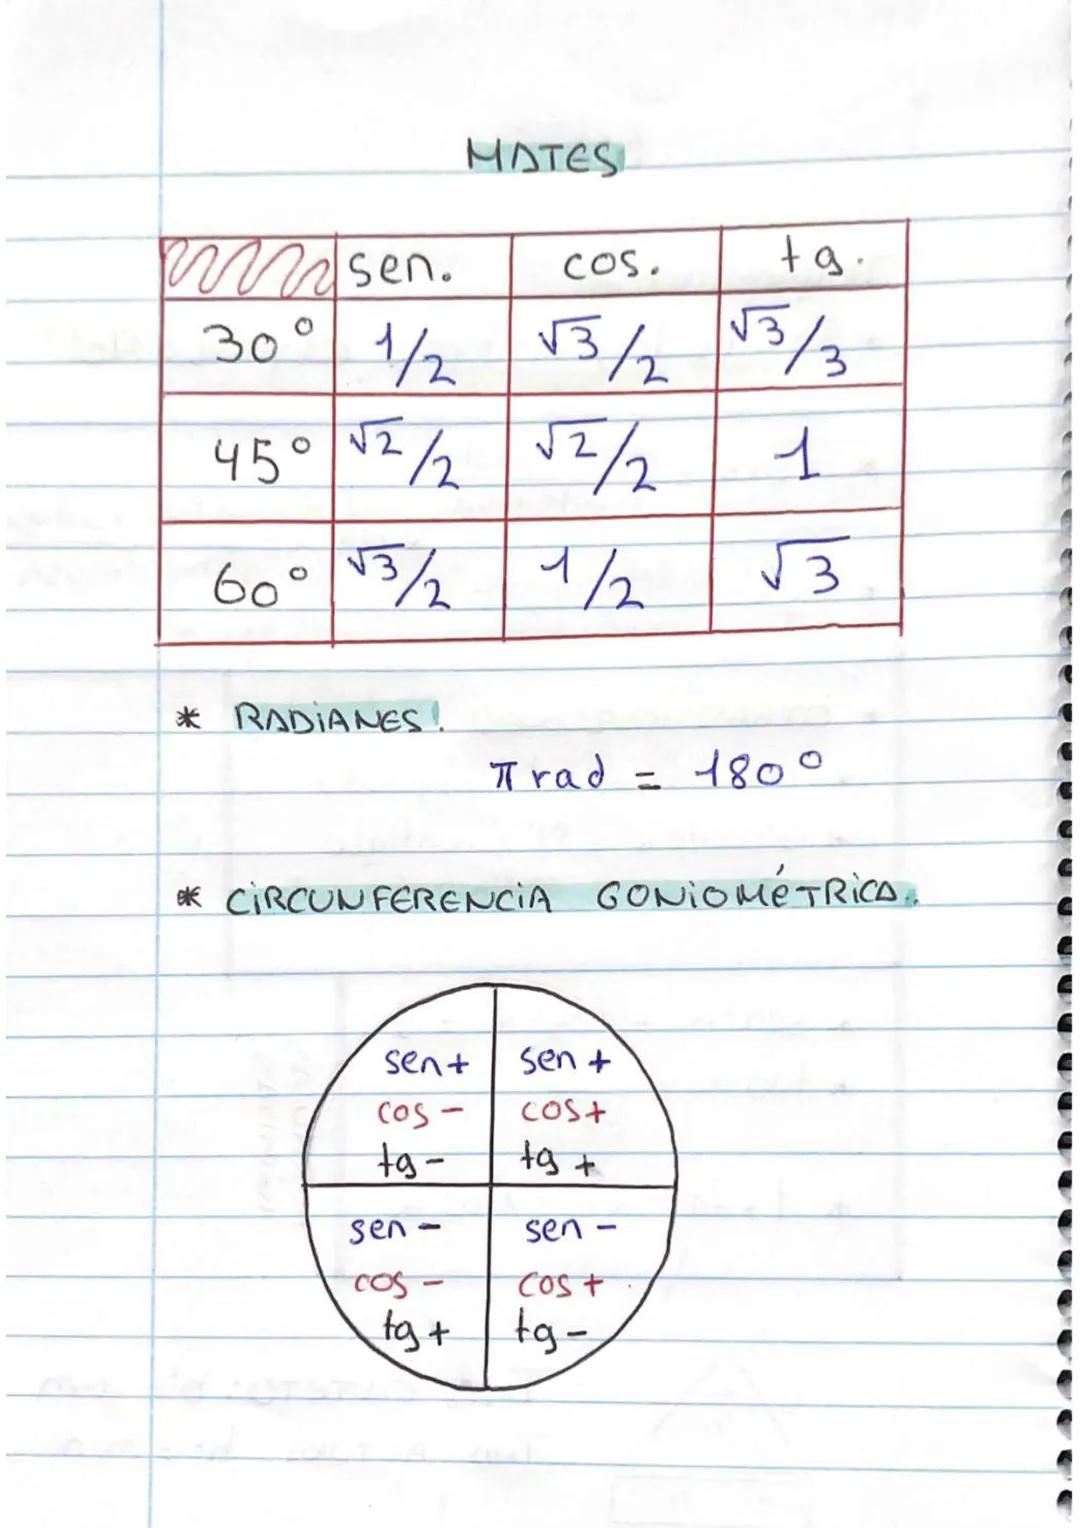 MATES
sen. cos. tg.
30° 1/2 √3/2 √3/3
45° √2/2 √2/2 1
60° √3/2 1/2 √3
* RADIANES!
π rad = 180°
* CIRCUNFERENCIA GONIOMÉTRICA.
sen + sen +
cos - cos +
tg - tg +
sen - sen -
cos - cos +
tg + tg -